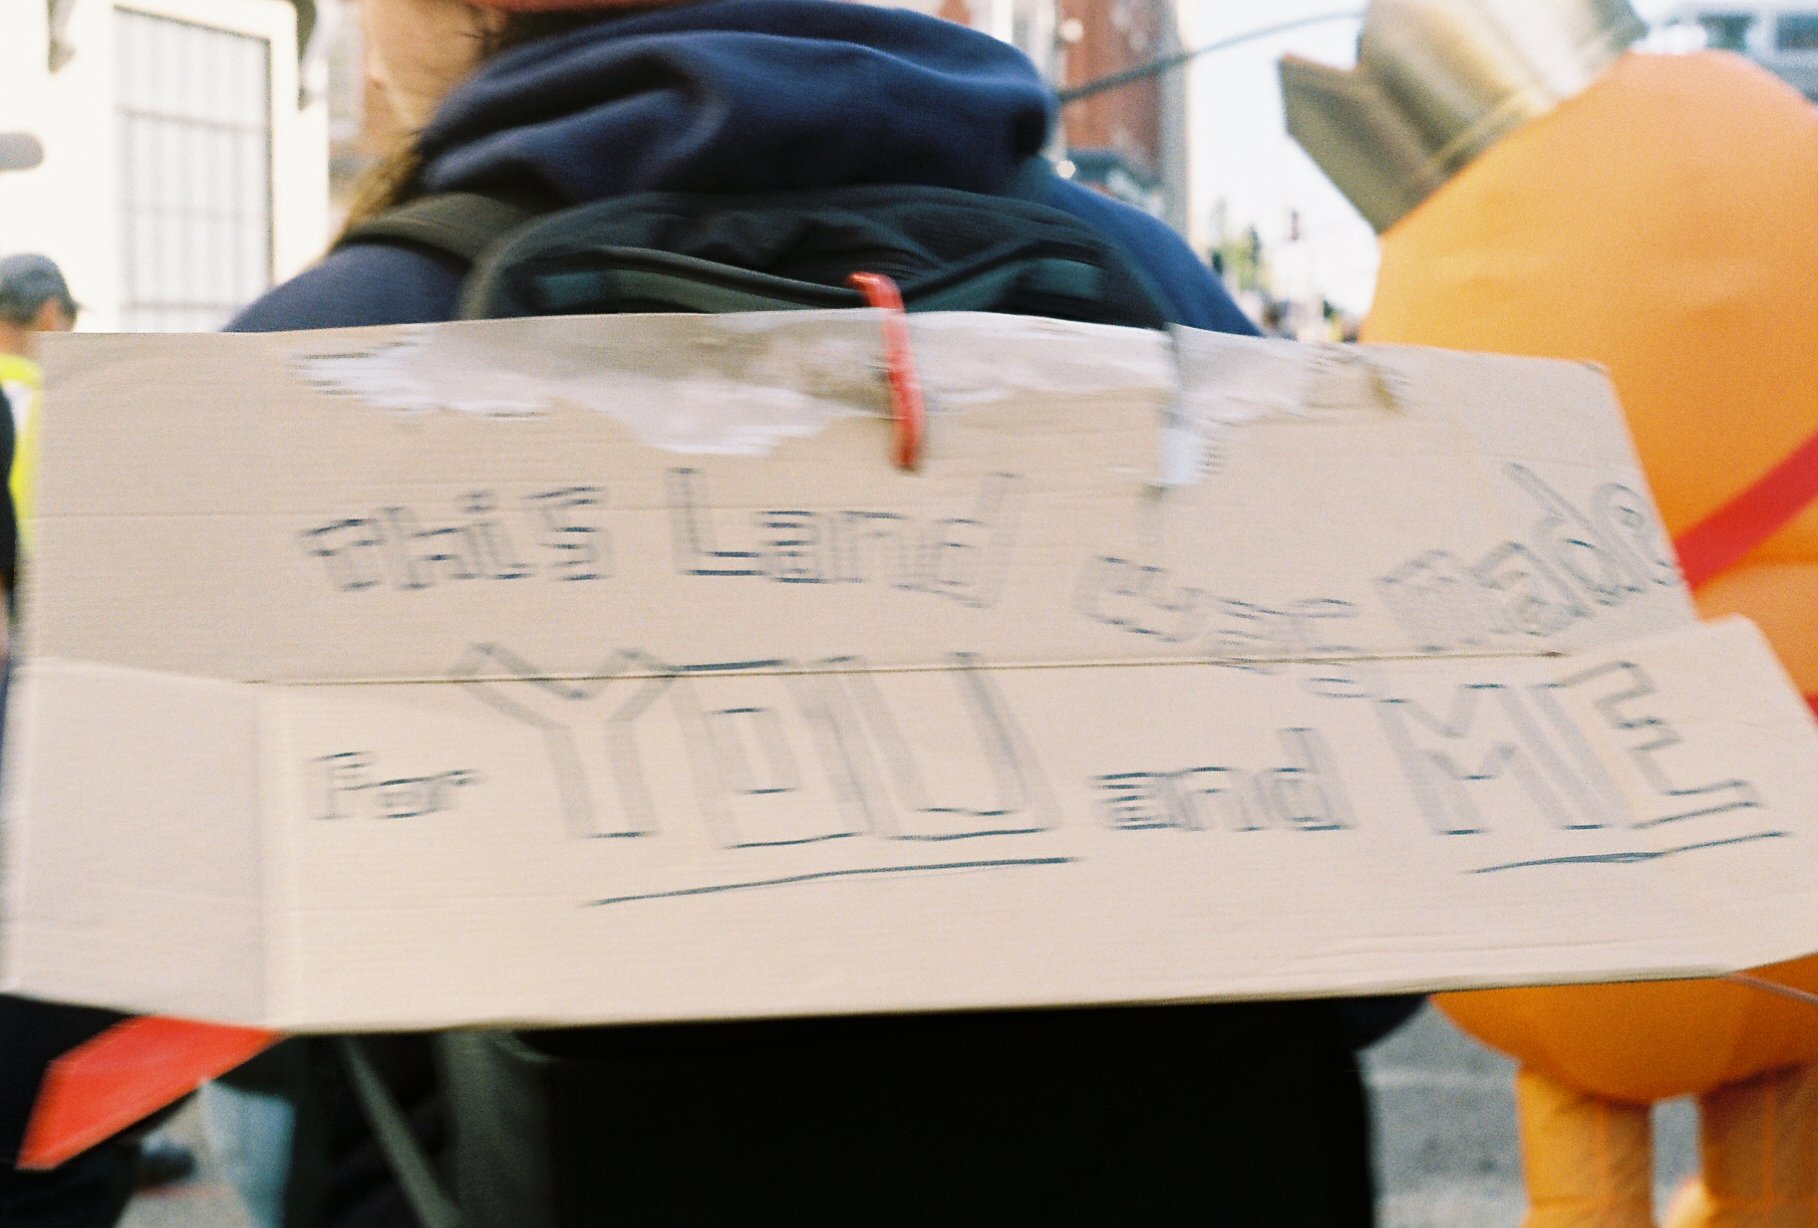 this Land was made
For YOU and ME